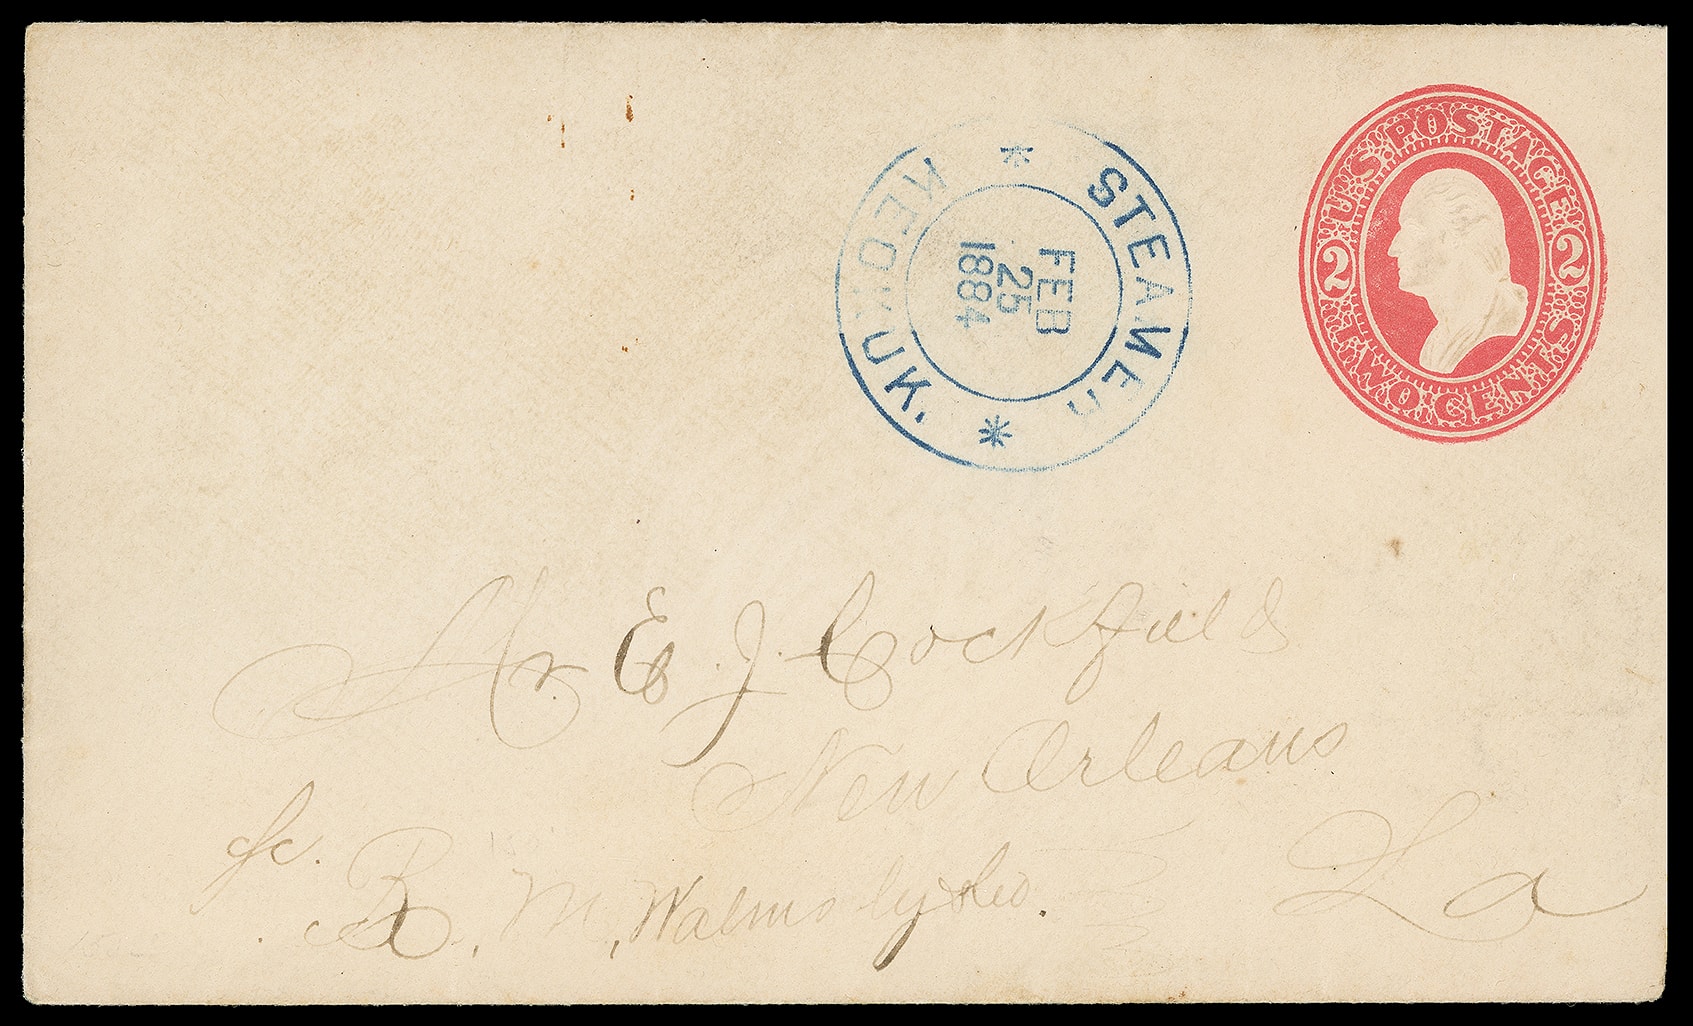 U.S. POSTAGE
2 2
TWO CENTS
STEAMER
FEB
25
1884
Mr E. J. Cockfield
New Orleans
La
c/c.
R. M. Walmsly & Co.